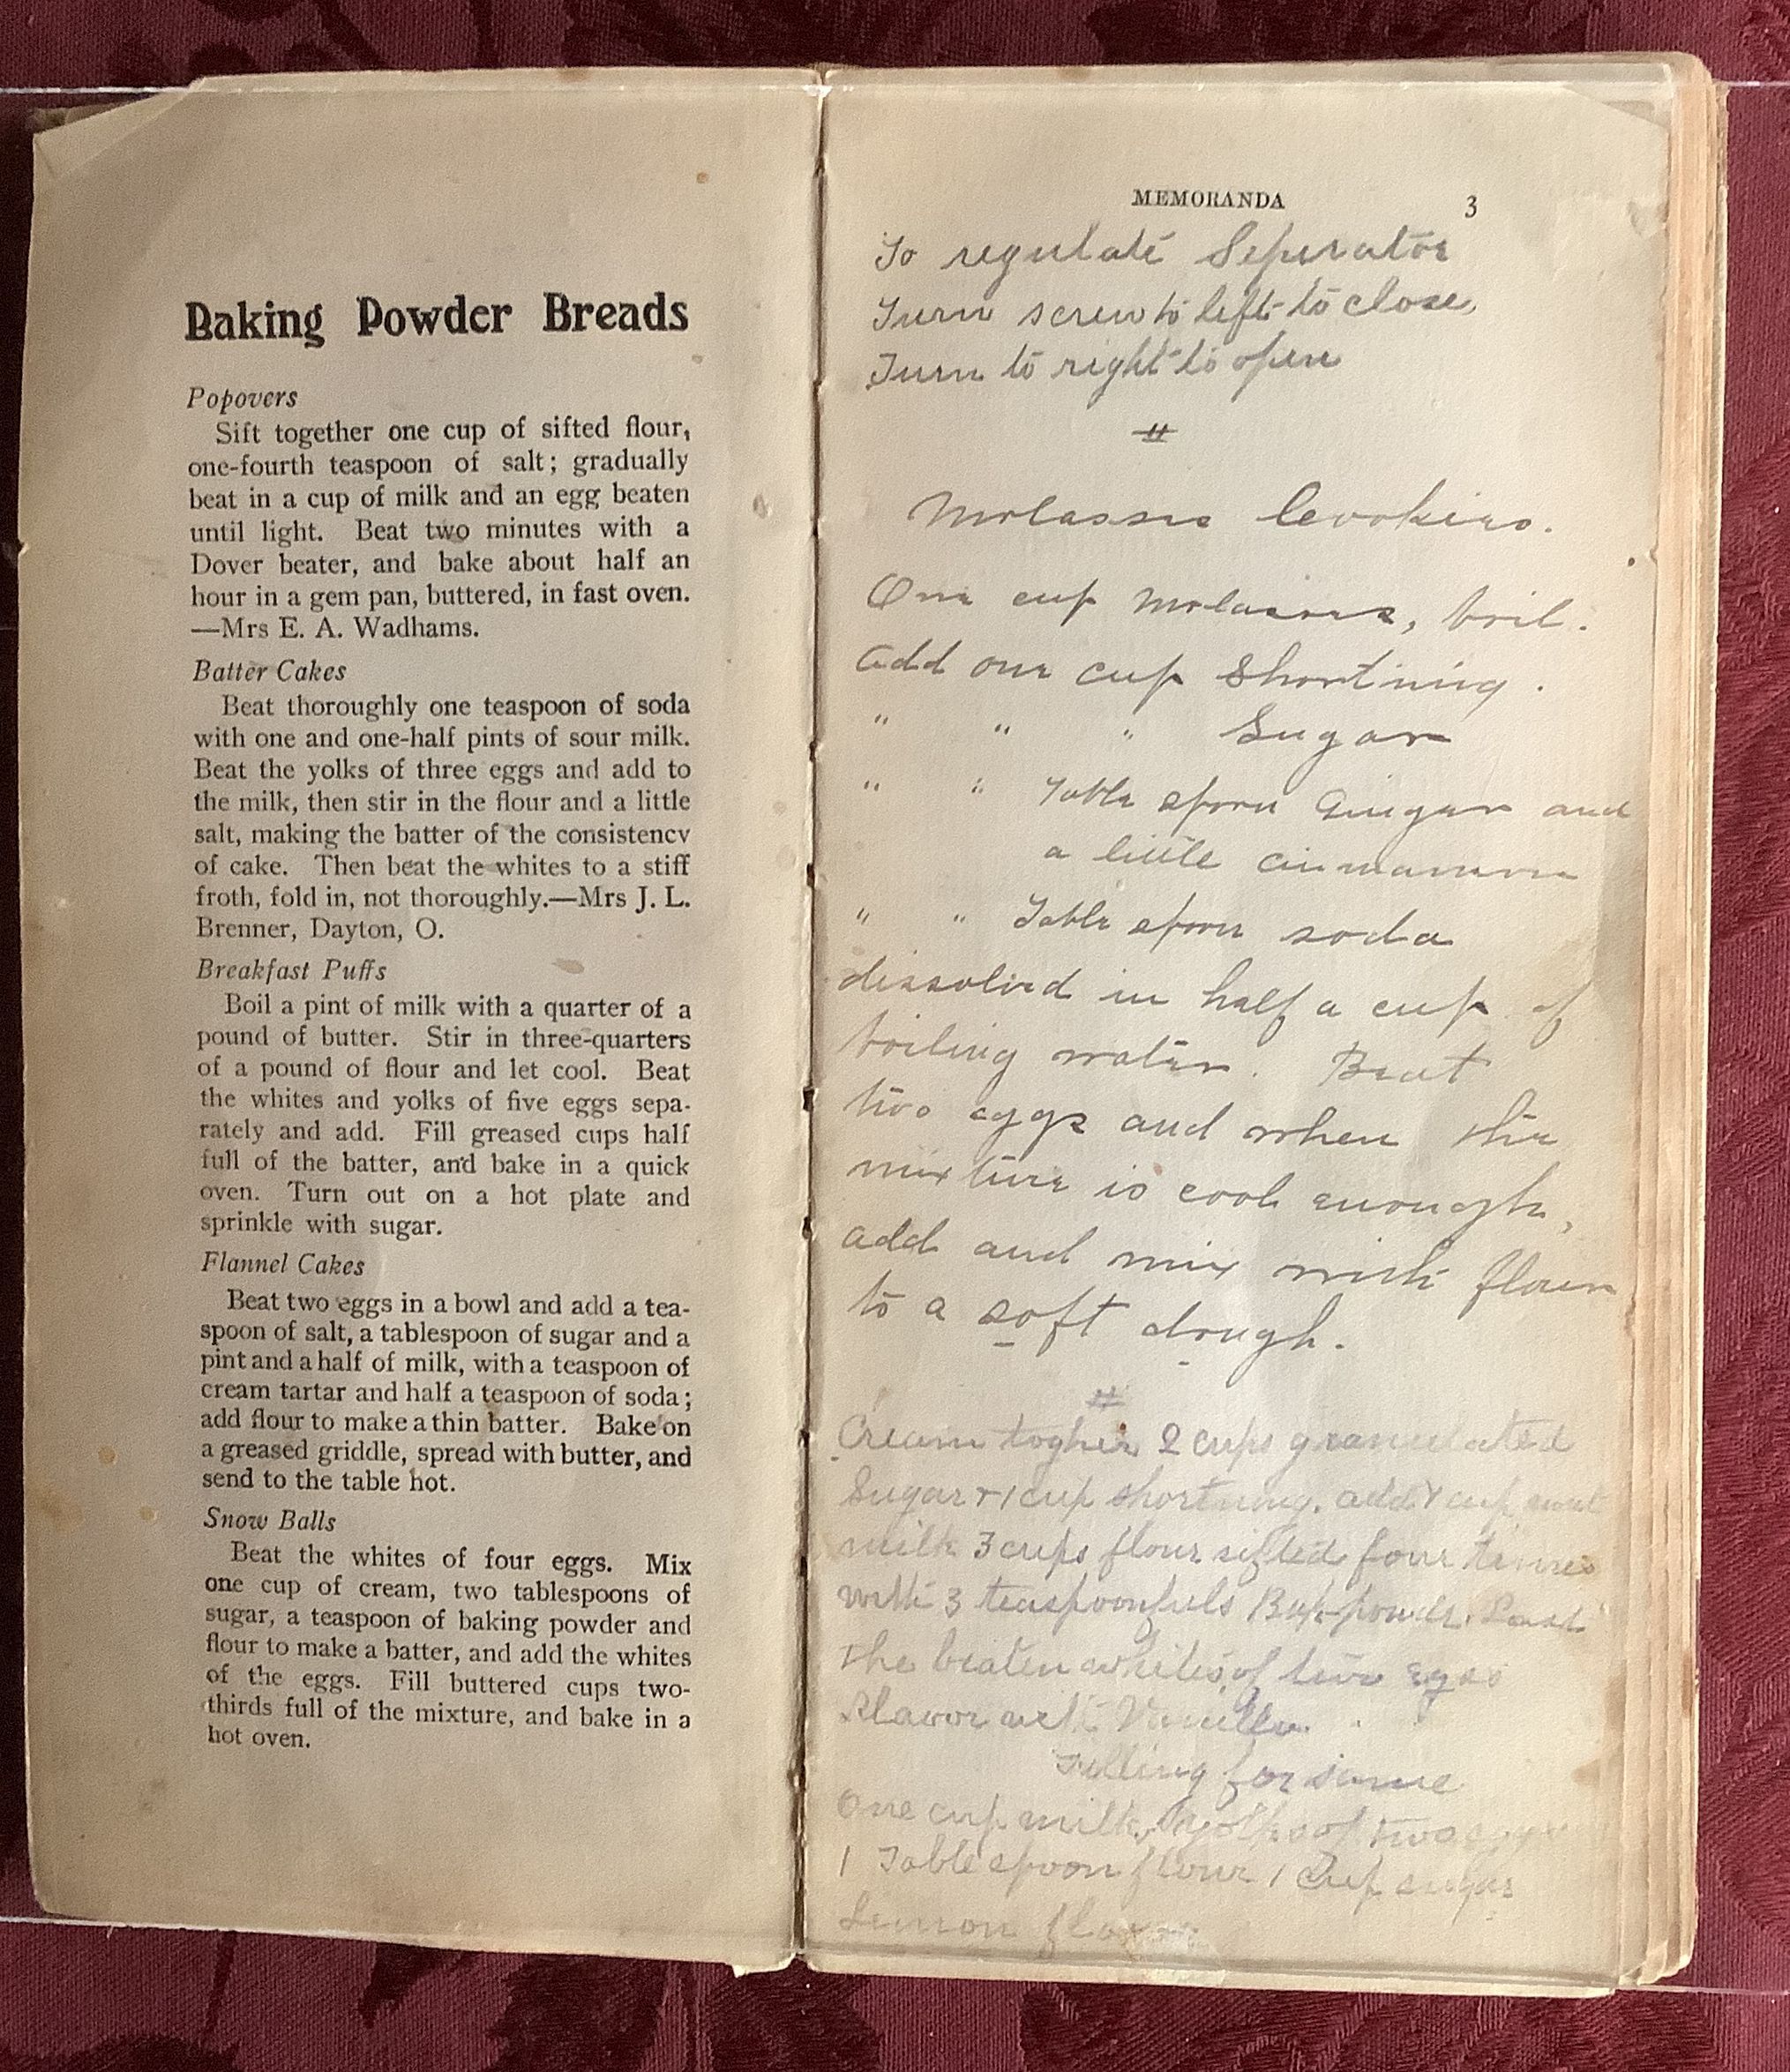 Baking Powder Breads
Popovers
Sift together one cup of sifted flour,
one-fourth teaspoon of salt; gradually
beat in a cup of milk and an egg beaten
until light. Beat two minutes with a
Dover beater, and bake about half an
hour in a gem pan, buttered, in fast oven.
—Mrs E. A. Wadhams.
Batter Cakes
Beat thoroughly one teaspoon of soda
with one and one-half pints of sour milk.
Beat the yolks of three eggs and add to
the milk, then stir in the flour and a little
salt, making the batter of the consistency
of cake. Then beat the whites to a stiff
froth, fold in, not thoroughly.—Mrs J. L.
Brenner, Dayton, O.
Breakfast Puffs
Boil a pint of milk with a quarter of a
pound of butter. Stir in three-quarters
of a pound of flour and let cool. Beat
the whites and yolks of five eggs sepa-
rately and add. Fill greased cups half
full of the batter, and bake in a quick
oven. Turn out on a hot plate and
sprinkle with sugar.
Flannel Cakes
Beat two eggs in a bowl and add a tea-
spoon of salt, a tablespoon of sugar and a
pint and a half of milk, with a teaspoon of
cream tartar and half a teaspoon of soda;
add flour to make a thin batter. Bake on
a greased griddle, spread with butter, and
send to the table hot.
Snow Balls
Beat the whites of four eggs. Mix
one cup of cream, two tablespoons of
sugar, a teaspoon of baking powder and
flour to make a batter, and add the whites
of the eggs. Fill buttered cups two-
thirds full of the mixture, and bake in a
hot oven.
MEMORANDA 3
To regulate Seperator
Turn screw to left to close,
Turn to right to open
#
Molasses Cookies.
One cup Molasses, boil.
Add one cup Shortning.
" " " Sugar
" " Table spoon Ginger and
a little cinnamon
" " Table spoon soda
dissolved in half a cup of
boiling water. Beat
two eggs and when the
mixture is cool enough,
add and mix with flour
to a soft dough.
#
Cream togher 2 cups granulated
Sugar + 1 cup shortning. add 1 cup
milk 3 cups flour sifted four times
with 3 teaspoonfuls Bak-powdr. Last
the beaten whites of two eggs
Flavor with Vanilla.
Filling for same
One cup milk, yolks of two eggs
1 Table spoon flour 1 Cup sugar
Lemon flavor